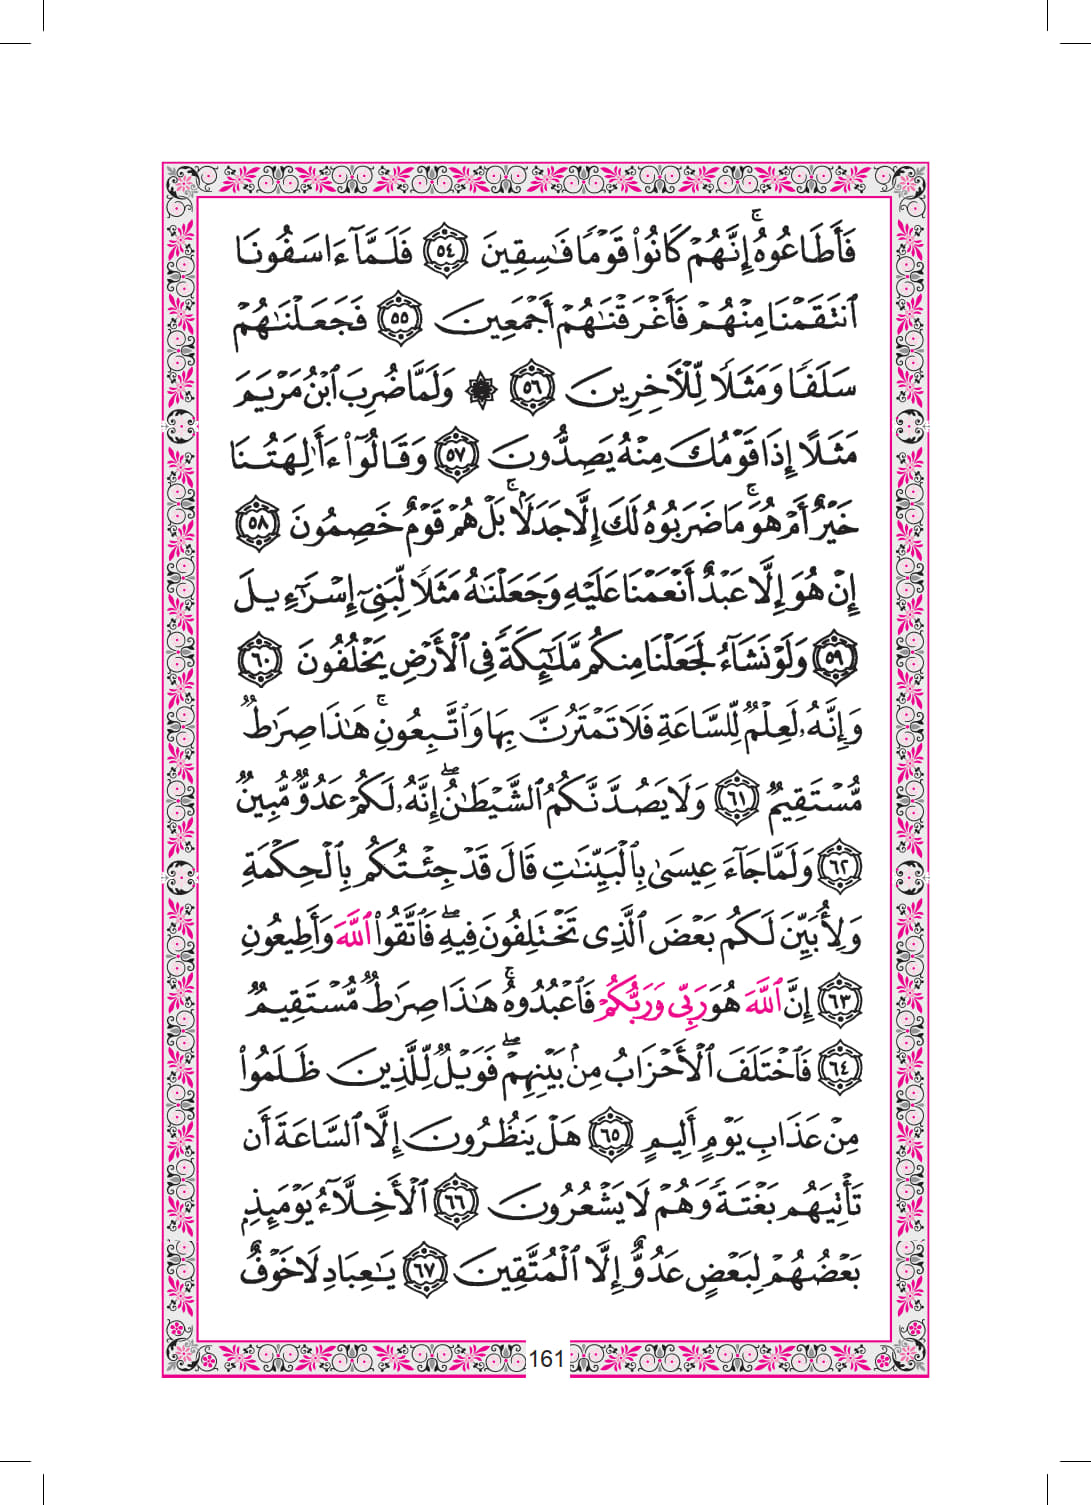 فَأَطَاعُوهُ ۚ إِنَّهُمْ كَانُوا۟ قَوْمًا فَـٰسِقِينَ ٥٤ فَلَمَّآ ءَاسَفُونَا
ٱنتَقَمْنَا مِنْهُمْ فَأَغْرَقْنَـٰهُمْ أَجْمَعِينَ ٥٥ فَجَعَلْنَـٰهُمْ
سَلَفًا وَمَثَلًا لِّلْـَٔاخِرِينَ ٥٦ ۞ وَلَمَّا ضُرِبَ ٱبْنُ مَرْيَمَ
مَثَلًا إِذَا قَوْمُكَ مِنْهُ يَصِدُّونَ ٥٧ وَقَالُوٓا۟ ءَأَـٰلِهَتُنَا
خَيْرٌ أَمْ هُوَ ۚ مَا ضَرَبُوهُ لَكَ إِلَّا جَدَلًۢا ۚ بَلْ هُمْ قَوْمٌ خَصِمُونَ ٥٨
إِنْ هُوَ إِلَّا عَبْدٌ أَنْعَمْنَا عَلَيْهِ وَجَعَلْنَـٰهُ مَثَلًا لِّبَنِىٓ إِسْرَٰٓءِيلَ
٥٩ وَلَوْ نَشَآءُ لَجَعَلْنَا مِنكُم مَّلَـٰٓئِكَةً فِى ٱلْأَرْضِ يَخْلُفُونَ ٦٠
وَإِنَّهُۥ لَعِلْمٌ لِّلسَّاعَةِ فَلَا تَمْتَرُنَّ بِهَا وَٱتَّبِعُونِ ۚ هَـٰذَا صِرَٰطٌ
مُّسْتَقِيمٌ ٦١ وَلَا يَصُدَّنَّكُمُ ٱلشَّيْطَـٰنُ ۖ إِنَّهُۥ لَكُمْ عَدُوٌّ مُّبِينٌ
٦٢ وَلَمَّا جَآءَ عِيسَىٰ بِٱلْبَيِّنَـٰتِ قَالَ قَدْ جِئْتُكُم بِٱلْحِكْمَةِ
وَلِأُبَيِّنَ لَكُم بَعْضَ ٱلَّذِى تَخْتَلِفُونَ فِيهِ ۖ فَٱتَّقُوا۟ ٱللَّهَ وَأَطِيعُونِ
٦٣ إِنَّ ٱللَّهَ هُوَ رَبِّى وَرَبُّكُمْ فَٱعْبُدُوهُ ۚ هَـٰذَا صِرَٰطٌ مُّسْتَقِيمٌ
٦٤ فَٱخْتَلَفَ ٱلْأَحْزَابُ مِنۢ بَيْنِهِمْ ۖ فَوَيْلٌ لِّلَّذِينَ ظَلَمُوا۟
مِنْ عَذَابِ يَوْمٍ أَلِيمٍ ٦٥ هَلْ يَنظُرُونَ إِلَّا ٱلسَّاعَةَ أَن
تَأْتِيَهُم بَغْتَةً وَهُمْ لَا يَشْعُرُونَ ٦٦ ٱلْأَخِلَّآءُ يَوْمَئِذٍۭ
بَعْضُهُمْ لِبَعْضٍ عَدُوٌّ إِلَّا ٱلْمُتَّقِينَ ٦٧ يَـٰعِبَادِ لَا خَوْفٌ
161